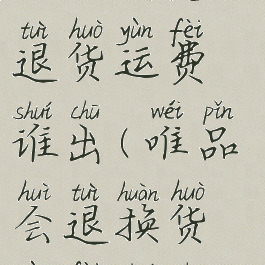 tuì huò yùn fèi
退货运费
shuí chū wéi pǐn
谁出(唯品
huì tuì huàn huò
会退换货